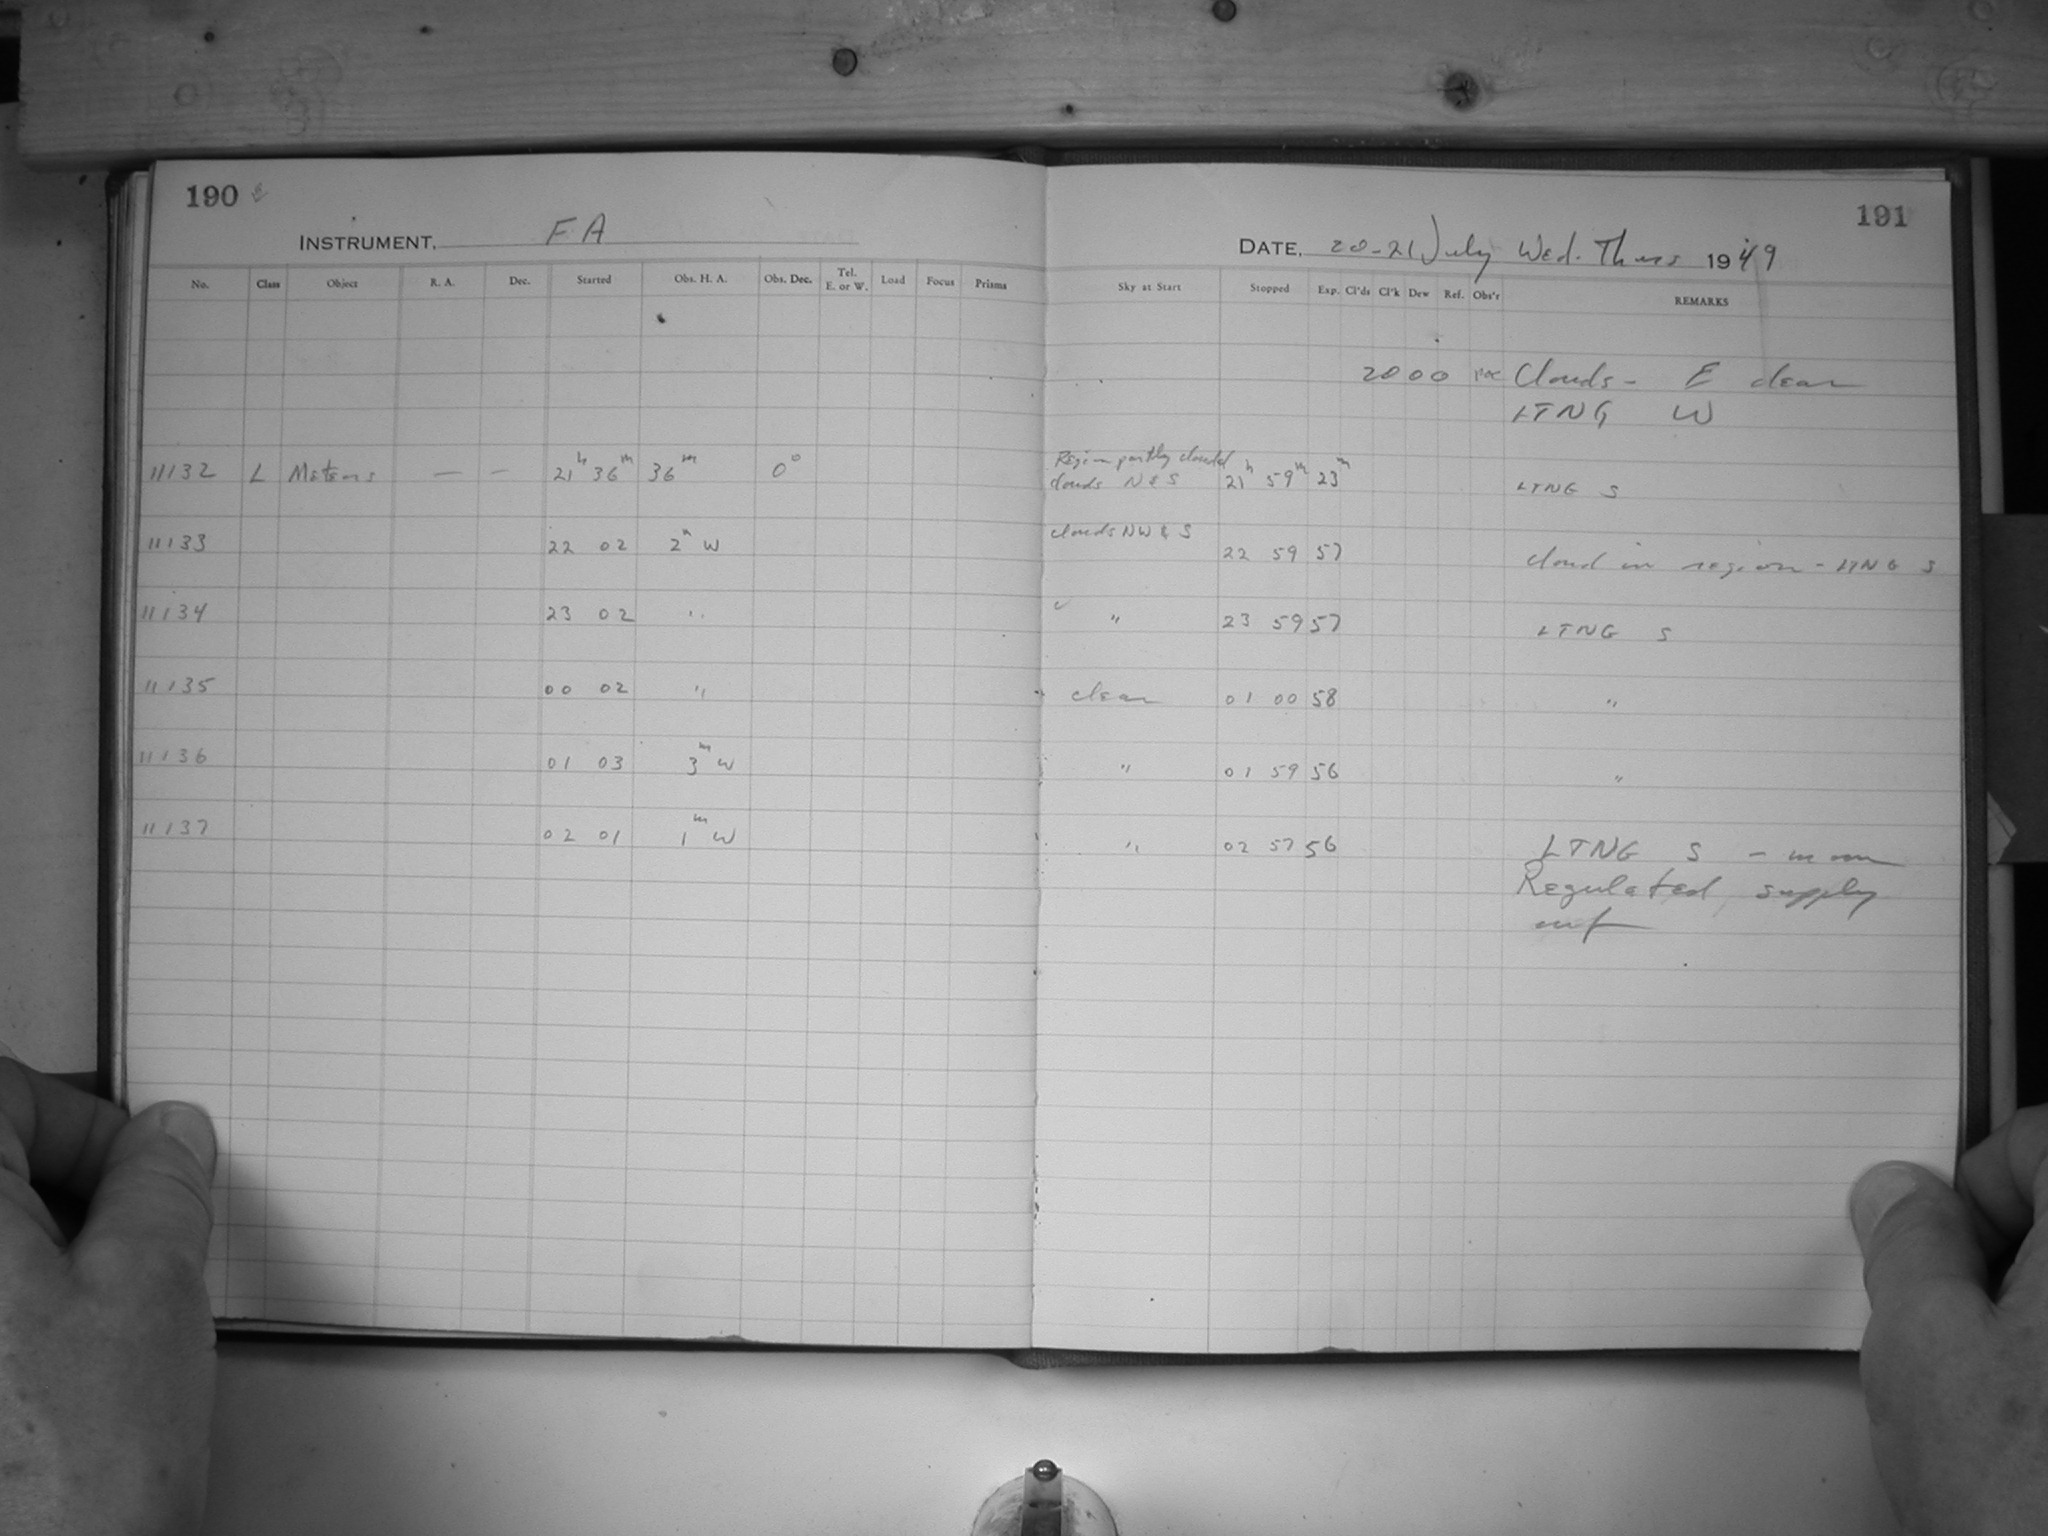 190
INSTRUMENT, FA
No. Class Object R. A. Dec. Started Obs. H. A. Obs. Dec. Tel. E. or W. Load Focus Prisms
11132 L Meteors — — 21h 36m 36m 0°
11133 22 02 2m W
11134 23 02 "
11135 00 02 "
11136 01 03 3m W
11137 02 01 1m W
191
DATE, 20-21 July Wed. Thurs 1949
Sky at Start Stopped Exp. Cl'ds Cl'k Dew Ref. Obs'r REMARKS
2000 Clouds - E clear
LTNG W
Region partly clouded
clouds N & S 21h 59m 23m LTNG S
clouds NW & S
22 59 57 cloud in region - LTNG S
" 23 59 57 LTNG S
clear 01 00 58 "
" 01 59 56 "
" 02 57 56 LTNG S - moon
Regulated supply